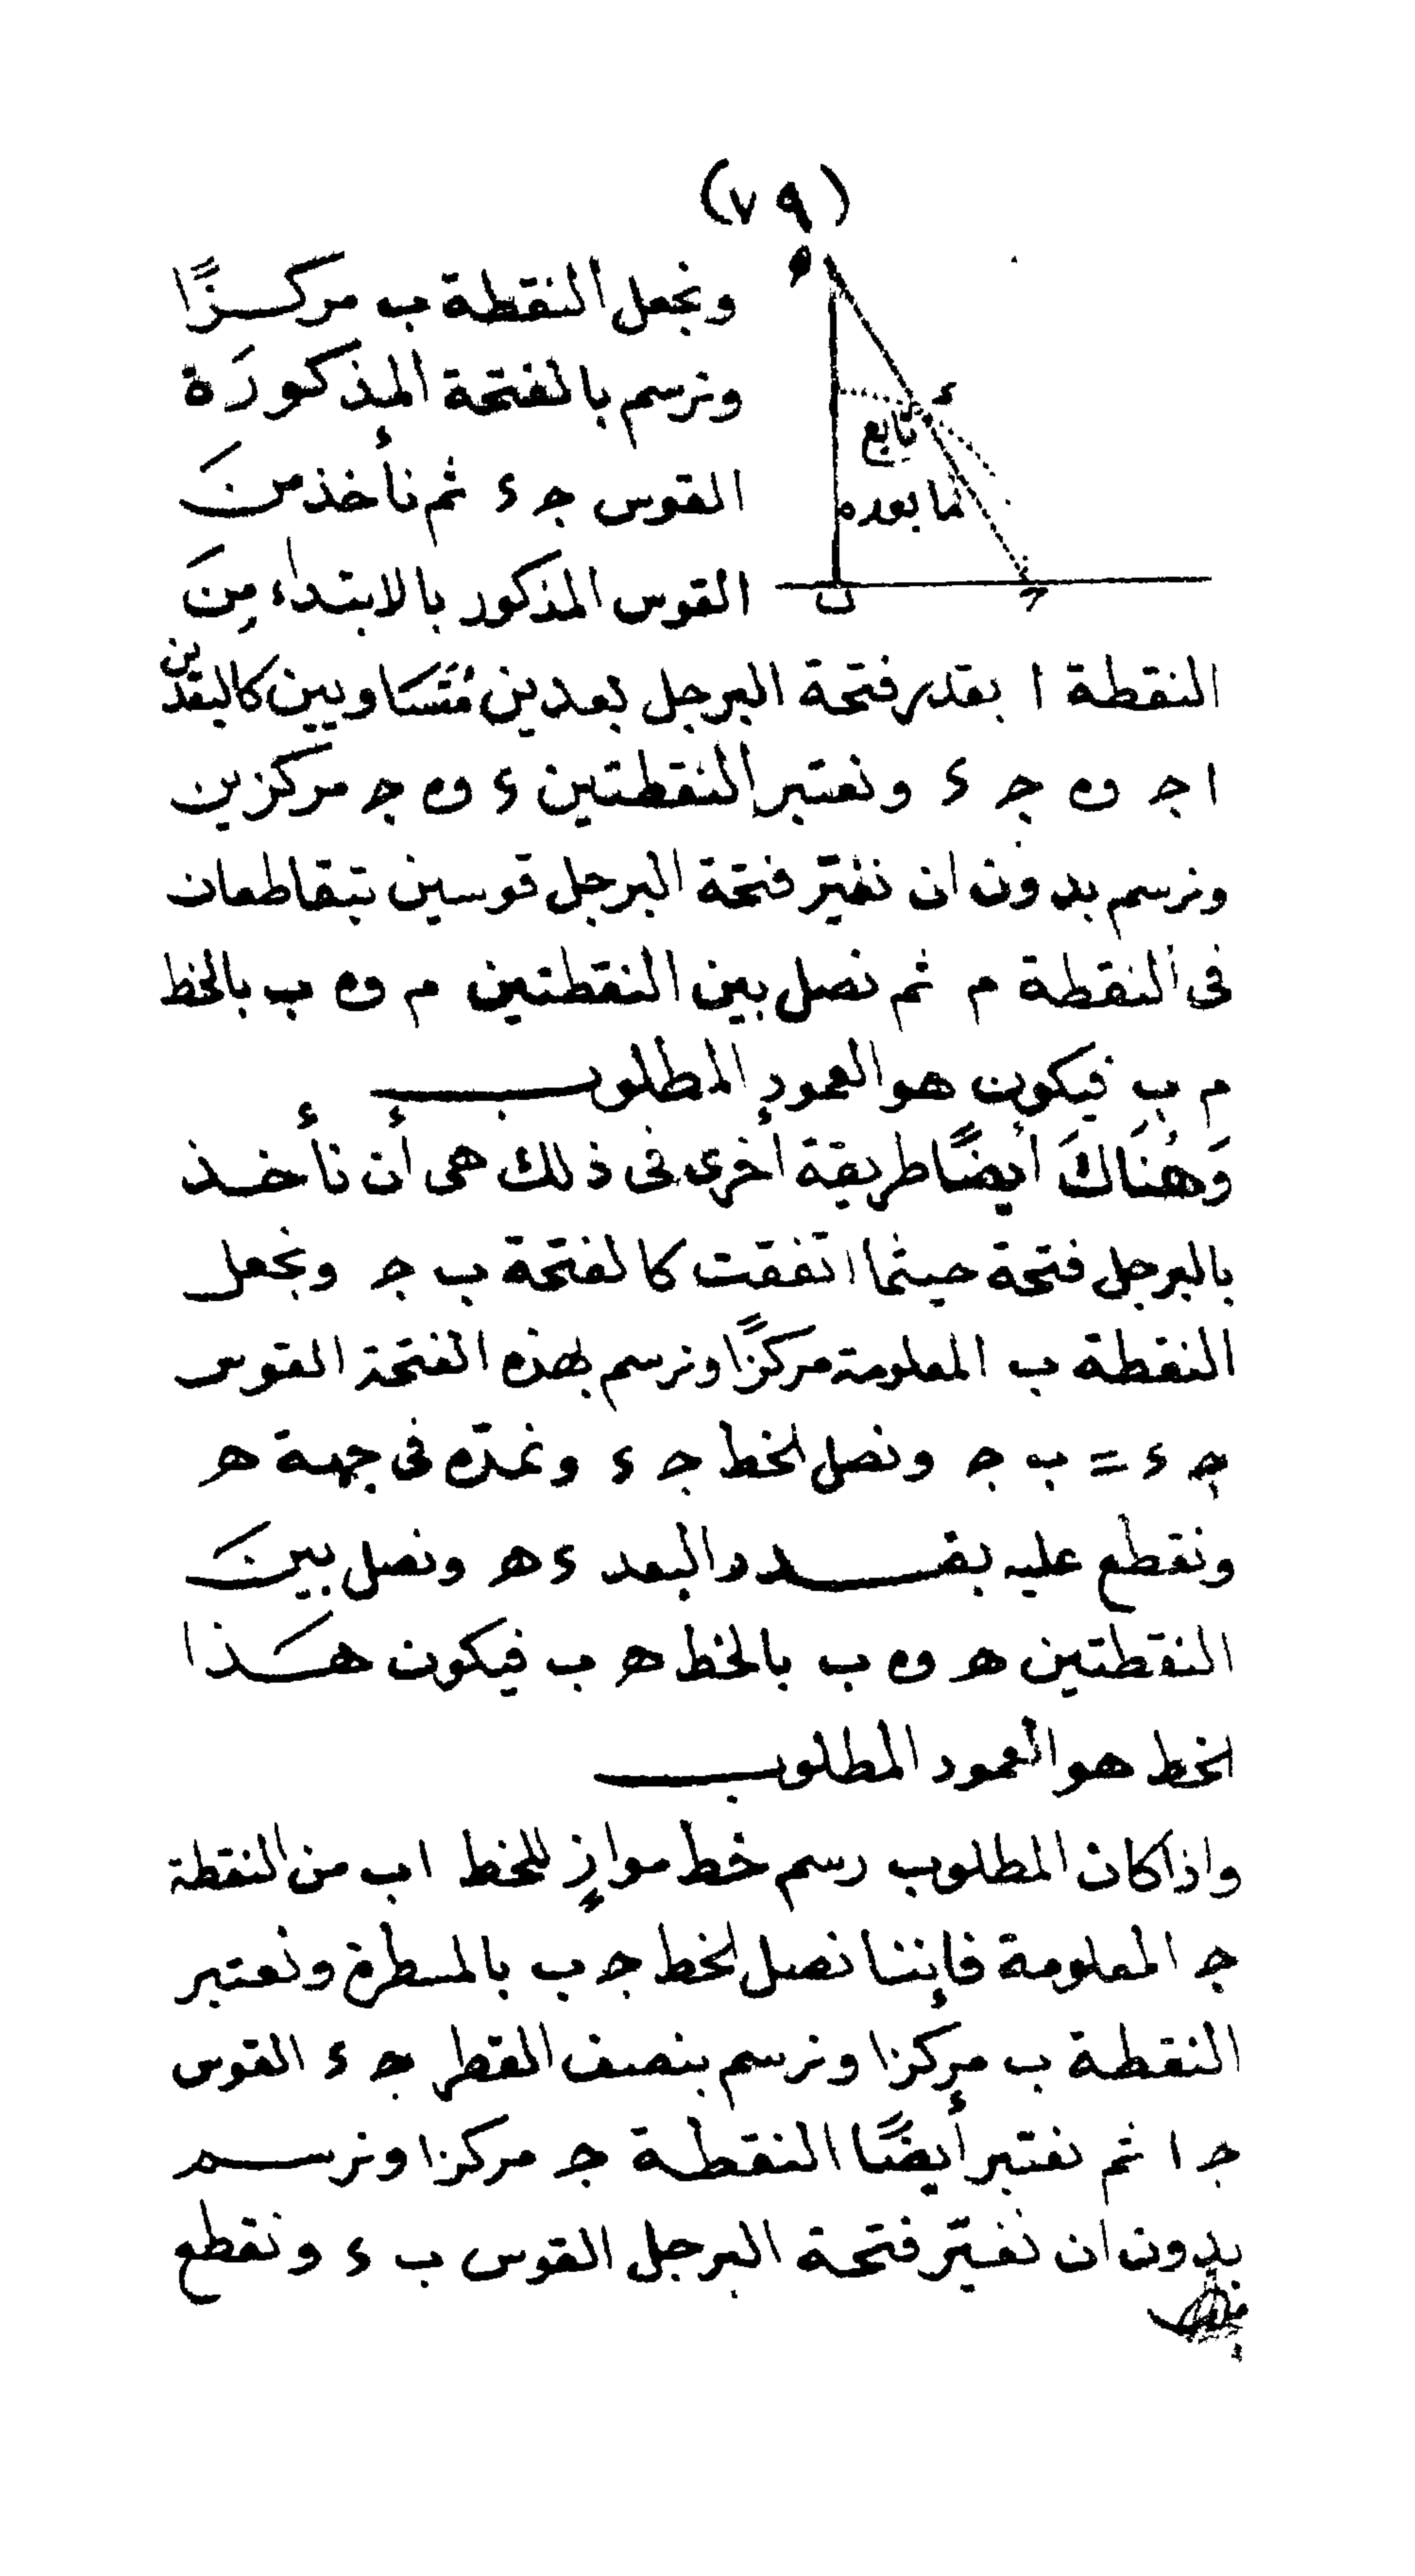 (٧٩)
ونجعل النقطة ب مركزًا
ونرسم بالفتحة المذكورَة
القوس جـ ء ثم نأخذ منَ
القوس المذكور بالابتداء مِنَ
ه
ء
تابع
لما بعده
ب
جـ
النقطة ا بقدر فتحة البرجل بعدين مُتَسَاويين كالبعدين
ا جـ و ه جـ ء ونعتبر النقطتين ء و ه جـ مركزين
ونرسم بدون ان نغيّر فتحة البرجل قوسين يتقاطعان
فى النقطة م ثم نصل بين النقطتين م و ه ب بالخط
م ب فيكون هو العمود المطلوب
وَهُنَاكَ أيضًا طريقة أخرى فى ذلك هى أن نأخذ
بالبرجل فتحة حيثما اتفقت كالفتحة ب جـ ونجعل
النقطة ب المعلومة مركزًا ونرسم بهذه الفتحة القوس
جـ ء = ب جـ ونصل الخط جـ ء ونمدّه فى جهة هـ
ونقطع عليه بقدر البعد ء هـ ونصل بينَ
النقطتين هـ و ه ب بالخط هـ ب فيكون هَذا
الخط هو العمود المطلوب
واذا كان المطلوب رسم خط موازٍ للخط ا ب من النقطة
جـ المعلومة فإننا نصل الخط جـ ب بالمسطرة ونعتبر
النقطة ب مركزا ونرسم بنصف القطر جـ ء القوس
جـ ا ثم نعتبر أيضًا النقطة جـ مركزا ونرسم
بدون ان نغيّر فتحة البرجل القوس ب ء ونقطع